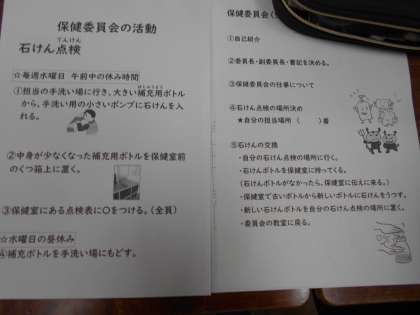 保健委員会の活動
てんけん
石けん点検
☆毎週水曜日 午前中の休み時間
ほじゅうよう
①担当の手洗い場に行き、大きい補充用ボトル
から、手洗い用の小さいポンプに石けんを入
れる。
②中身が少なくなった補充用ボトルを保健室前
のくつ箱上に置く。
③保健室にある点検表に〇をつける。（全員）
☆水曜日の昼休み
④補充用ボトルを手洗い場にもどす。
保健委員会（
①自己紹介
②委員長・副委員長・書記を決める。
③保健委員会の仕事について
④石けん点検の場所決め
★自分の担当場所（　　）番
⑤石けんの交換
・自分の石けん点検の場所に行く。
・石けんボトルを保健室に持ってくる。
（石けんボトルがなかったら、保健室に伝えに来る。）
・保健室で古いボトルから新しいボトルに石けんをうつす。
・新しい石けんボトルを自分の石けん点検の場所に置く。
・委員会の教室に戻る。